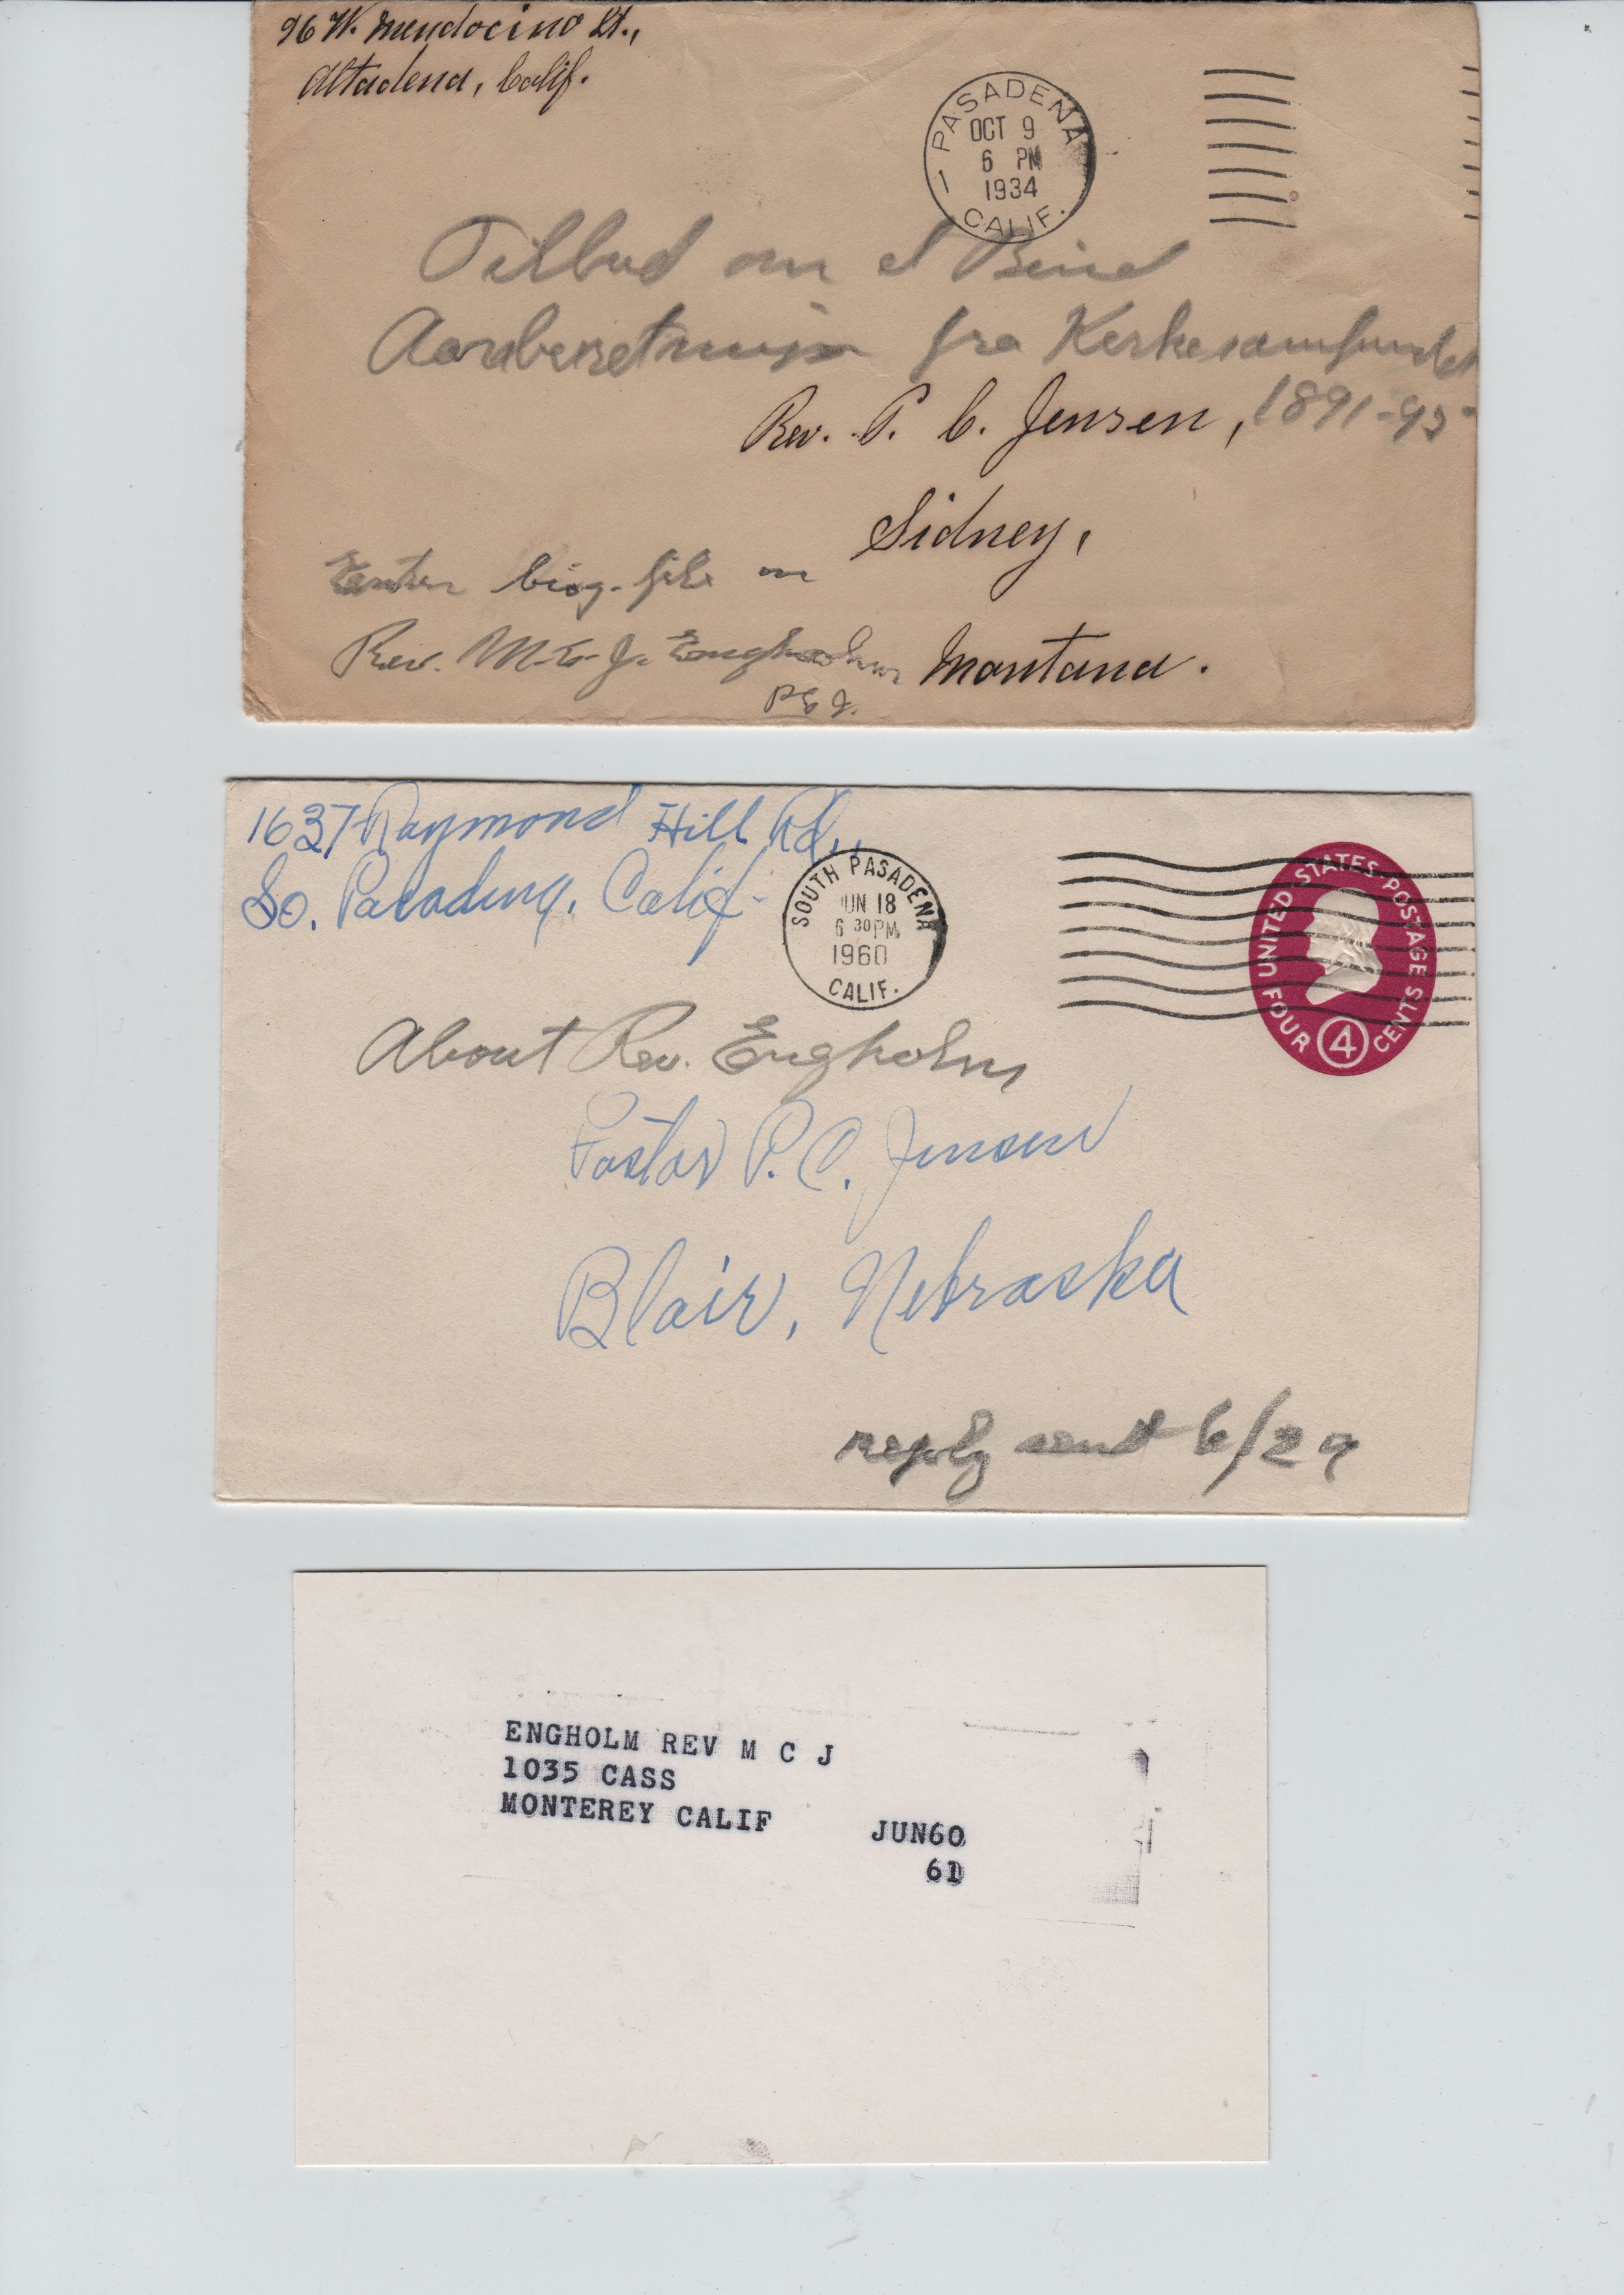 96 W. Mendocino St.,
Altadena, Calif.
PASADENA
OCT 9
6 PM
1934
1
CALIF.
Tilbud om et Bind
Aarsberetninger fra Kirkesamfundet
1891-95
Rev. P. C. Jensen,
Sidney,
Montana.
Enter biog. file on
Rev. M. C. J. Engholm
PCJ.
1637 Raymond Hill Rd.,
So. Pasadena, Calif.
SOUTH PASADENA
JUN 18
6 30 PM
1960
CALIF.
UNITED STATES POSTAGE
FOUR 4 CENTS
About Rev. Engholm
Pastor P. C. Jensen
Blair, Nebraska
reply sent 6/29
ENGHOLM REV M C J
1035 CASS
MONTEREY CALIF JUN60
61